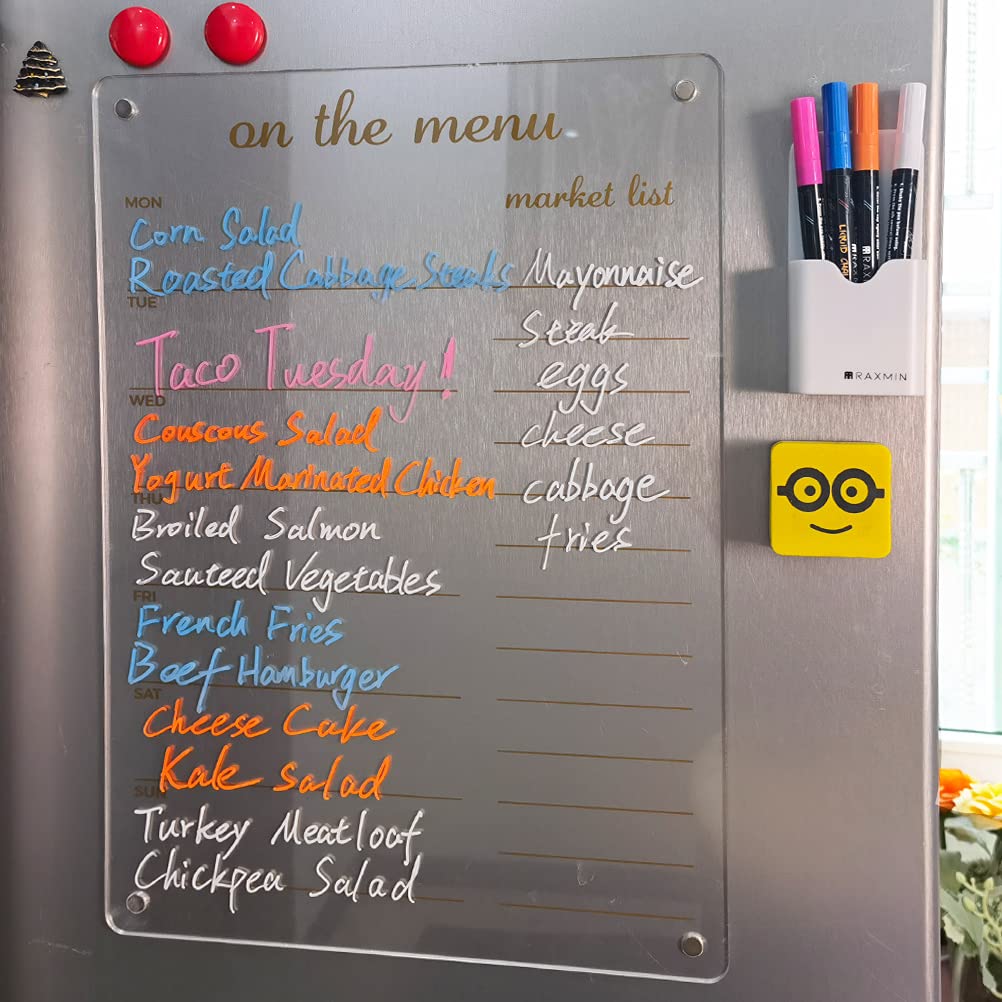 on the menu
MON
Corn Salad
Roasted Cabbage Steaks
TUE
Taco Tuesday!
WED
Couscous Salad
Yogurt Marinated Chicken
THU
Broiled Salmon
Sauteed Vegetables
FRI
French Fries
Beef Hamburger
SAT
Cheese Cake
Kale Salad
SUN
Turkey Meatloaf
Chickpea Salad
market list
Mayonnaise
Steak
eggs
cheese
cabbage
fries
LIQUID CHALK
RAXMIN